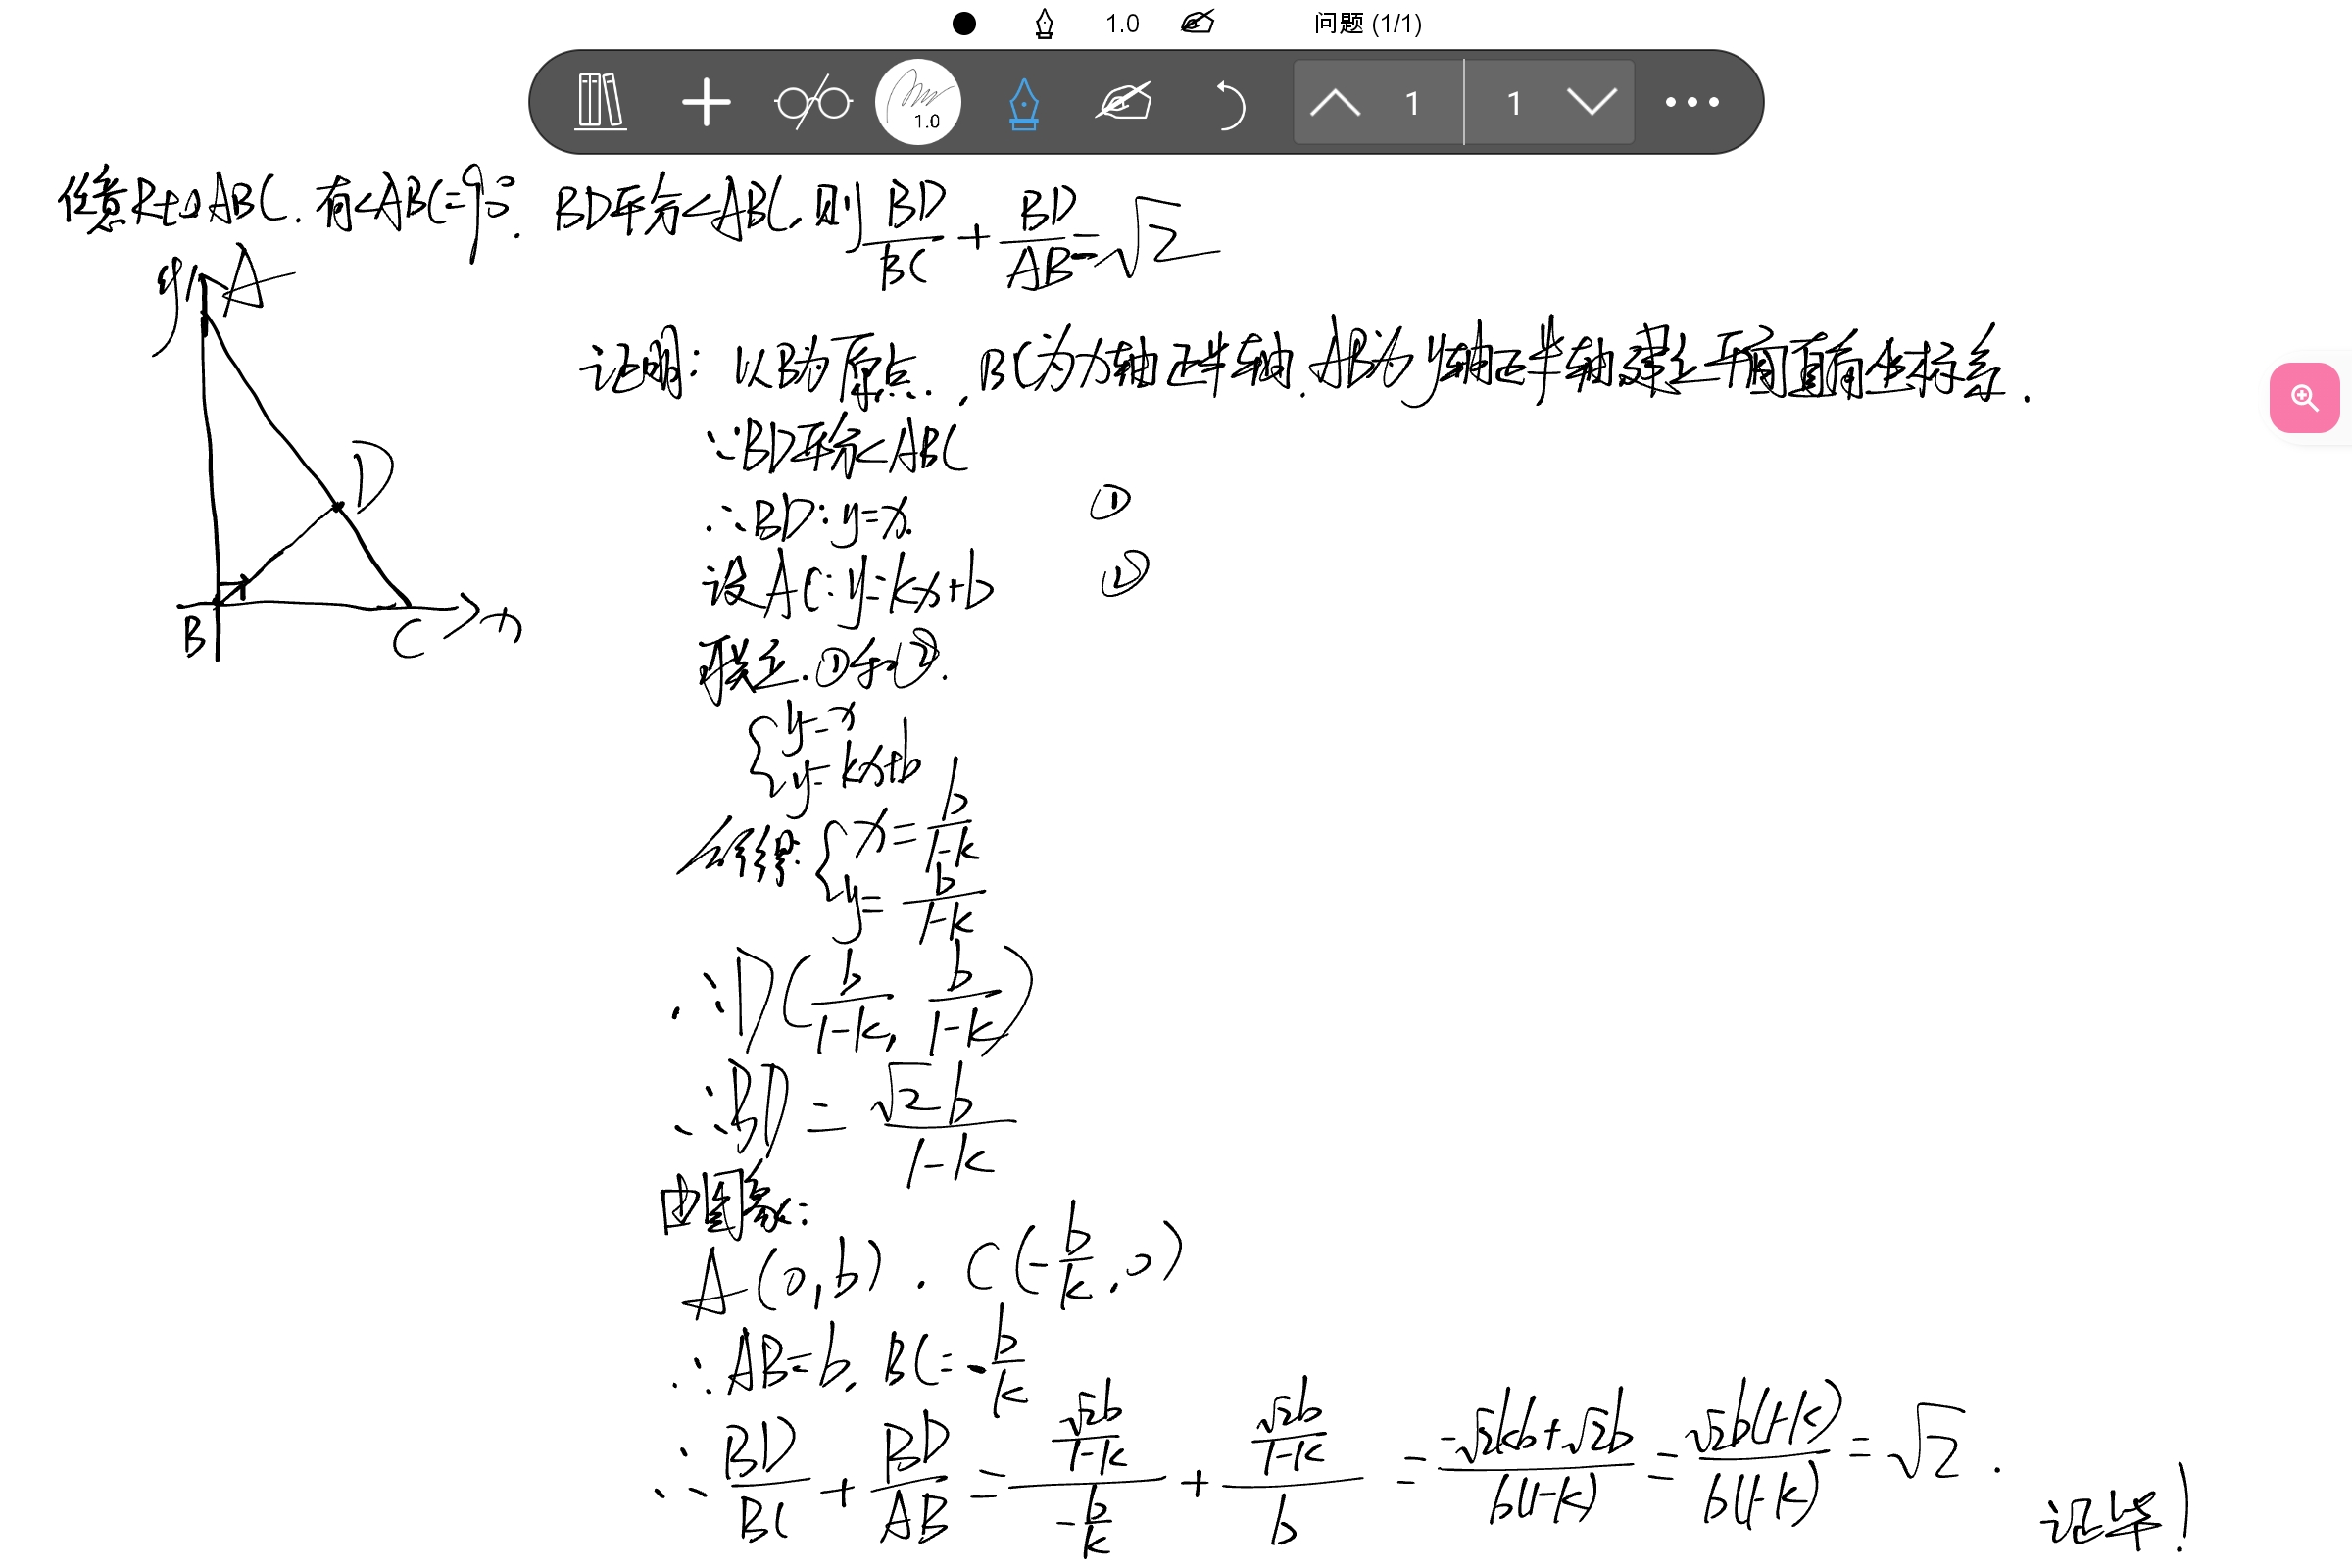 1.0 问题 (1/1)
1.0 1 1
任意Rt△ABC.有∠ABC=90°. BD平分∠ABC,则BD/BC + BD/AB = √2
y A
D
B C x
证明: 以B为原点., BC为x轴正半轴.AB为y轴正半轴建立平面直角坐标系.
∵BD平分∠ABC
∴BD:y=x. ①
设AC:y=kx+b ②
联立.①和②.
{y=x
y=kx+b
解得:{x=b/(1-k)
y=b/(1-k)
∴D(b/(1-k), b/(1-k))
∴BD=√2b/(1-k)
由图象:
A(0,b). C(-b/k,0)
∴AB=b, BC=-b/k
∴BD/BC + BD/AB = (√2b/(1-k))/(-b/k) + (√2b/(1-k))/b = (-√2kb+√2b)/(b(1-k)) = √2b(1-k)/(b(1-k)) = √2.
证毕!